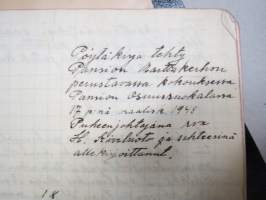 Pöytäkirja tehty
Pansion Raittiskerhon
perustavassa kokouksessa
Pansion Osuusruokalassa
17 p:nä maalisk. 1948
Puheenjohtajana rva
H. ja sihteerinä
allekirjoittanut.
1 §